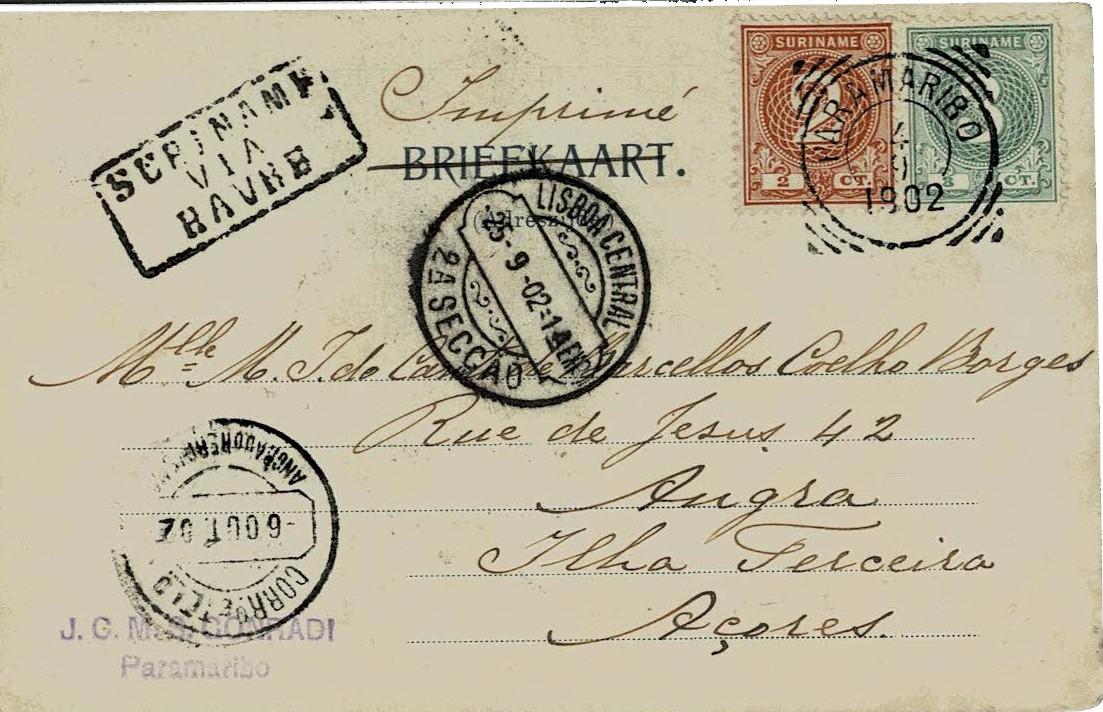 SURINAME
VIA
HAVRE
Imprimé
BRIEFKAART.
(Adreszijde)
SURINAME
2
2 CT.
SURINAME
CT.
PARAMARIBO
4
9
1902
LISBOA CENTRAL
25-9-02=1
2A SECCÃO
Mlle M. T. do Coelho Borges
Rue de Jesus 42
Angra
Ilha Terceira
Açores.
ANGRA DO HEROISMO
-6 OUT 02
CORREIO
J. C. CONRADI
Paramaribo